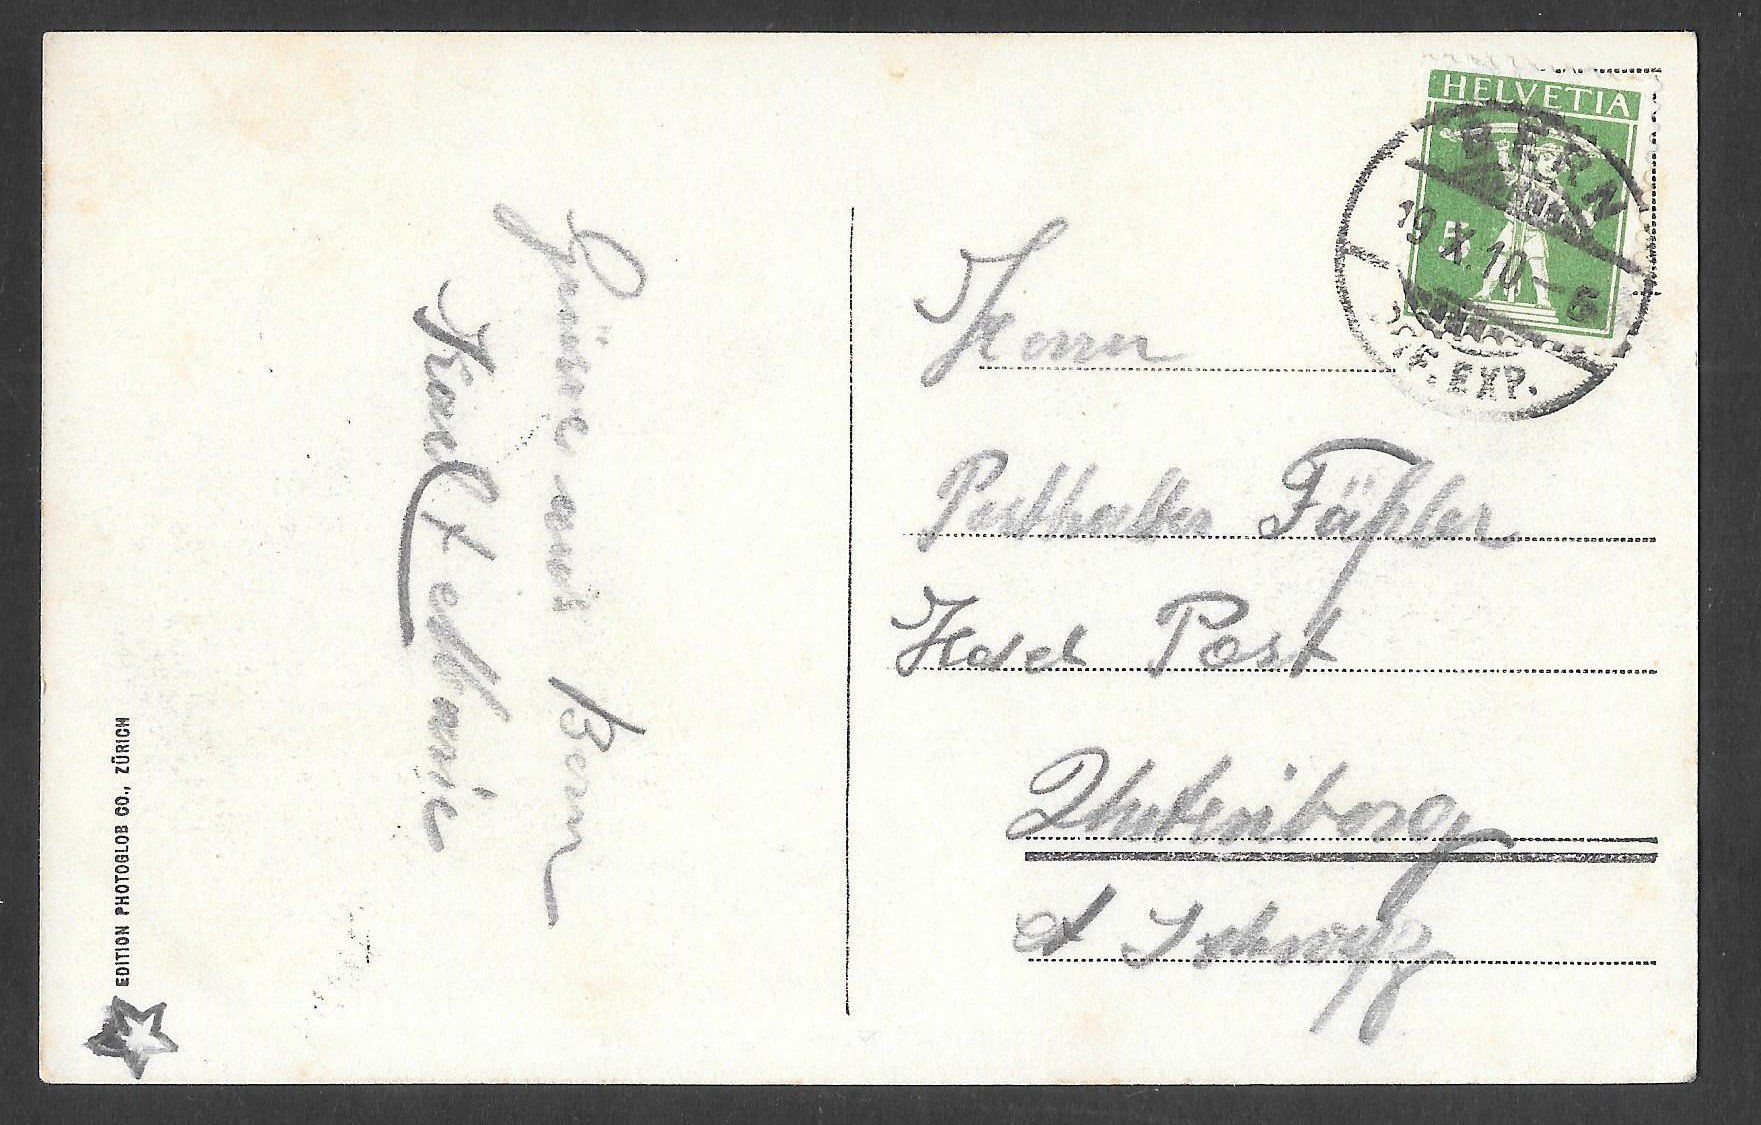 HELVETIA
5
BERN
19.X.10.–6
BRF. EXP.
Grüsse aus Bern
Karl + 
Herrn
Posthalter Fäßler
Hotel Post
Kt Schwyz
EDITION PHOTOGLOB CO., ZÜRICH